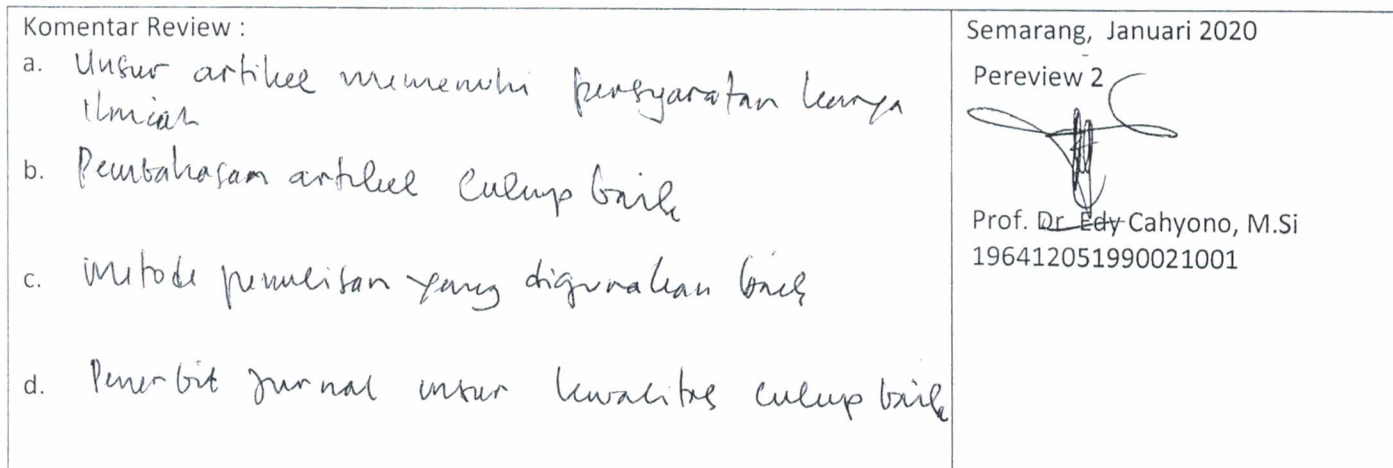 Komentar Review :
a. Unsur artikel memenuhi persyaratan karya
Ilmiah
b. Pembahasan artikel cukup baik
c. metode penulisan yang digunakan baik
d. Penerbit Jurnal unsur kwalitas cukup baik
Semarang, Januari 2020
Pereview 2
Prof. Dr. Edy Cahyono, M.Si
196412051990021001